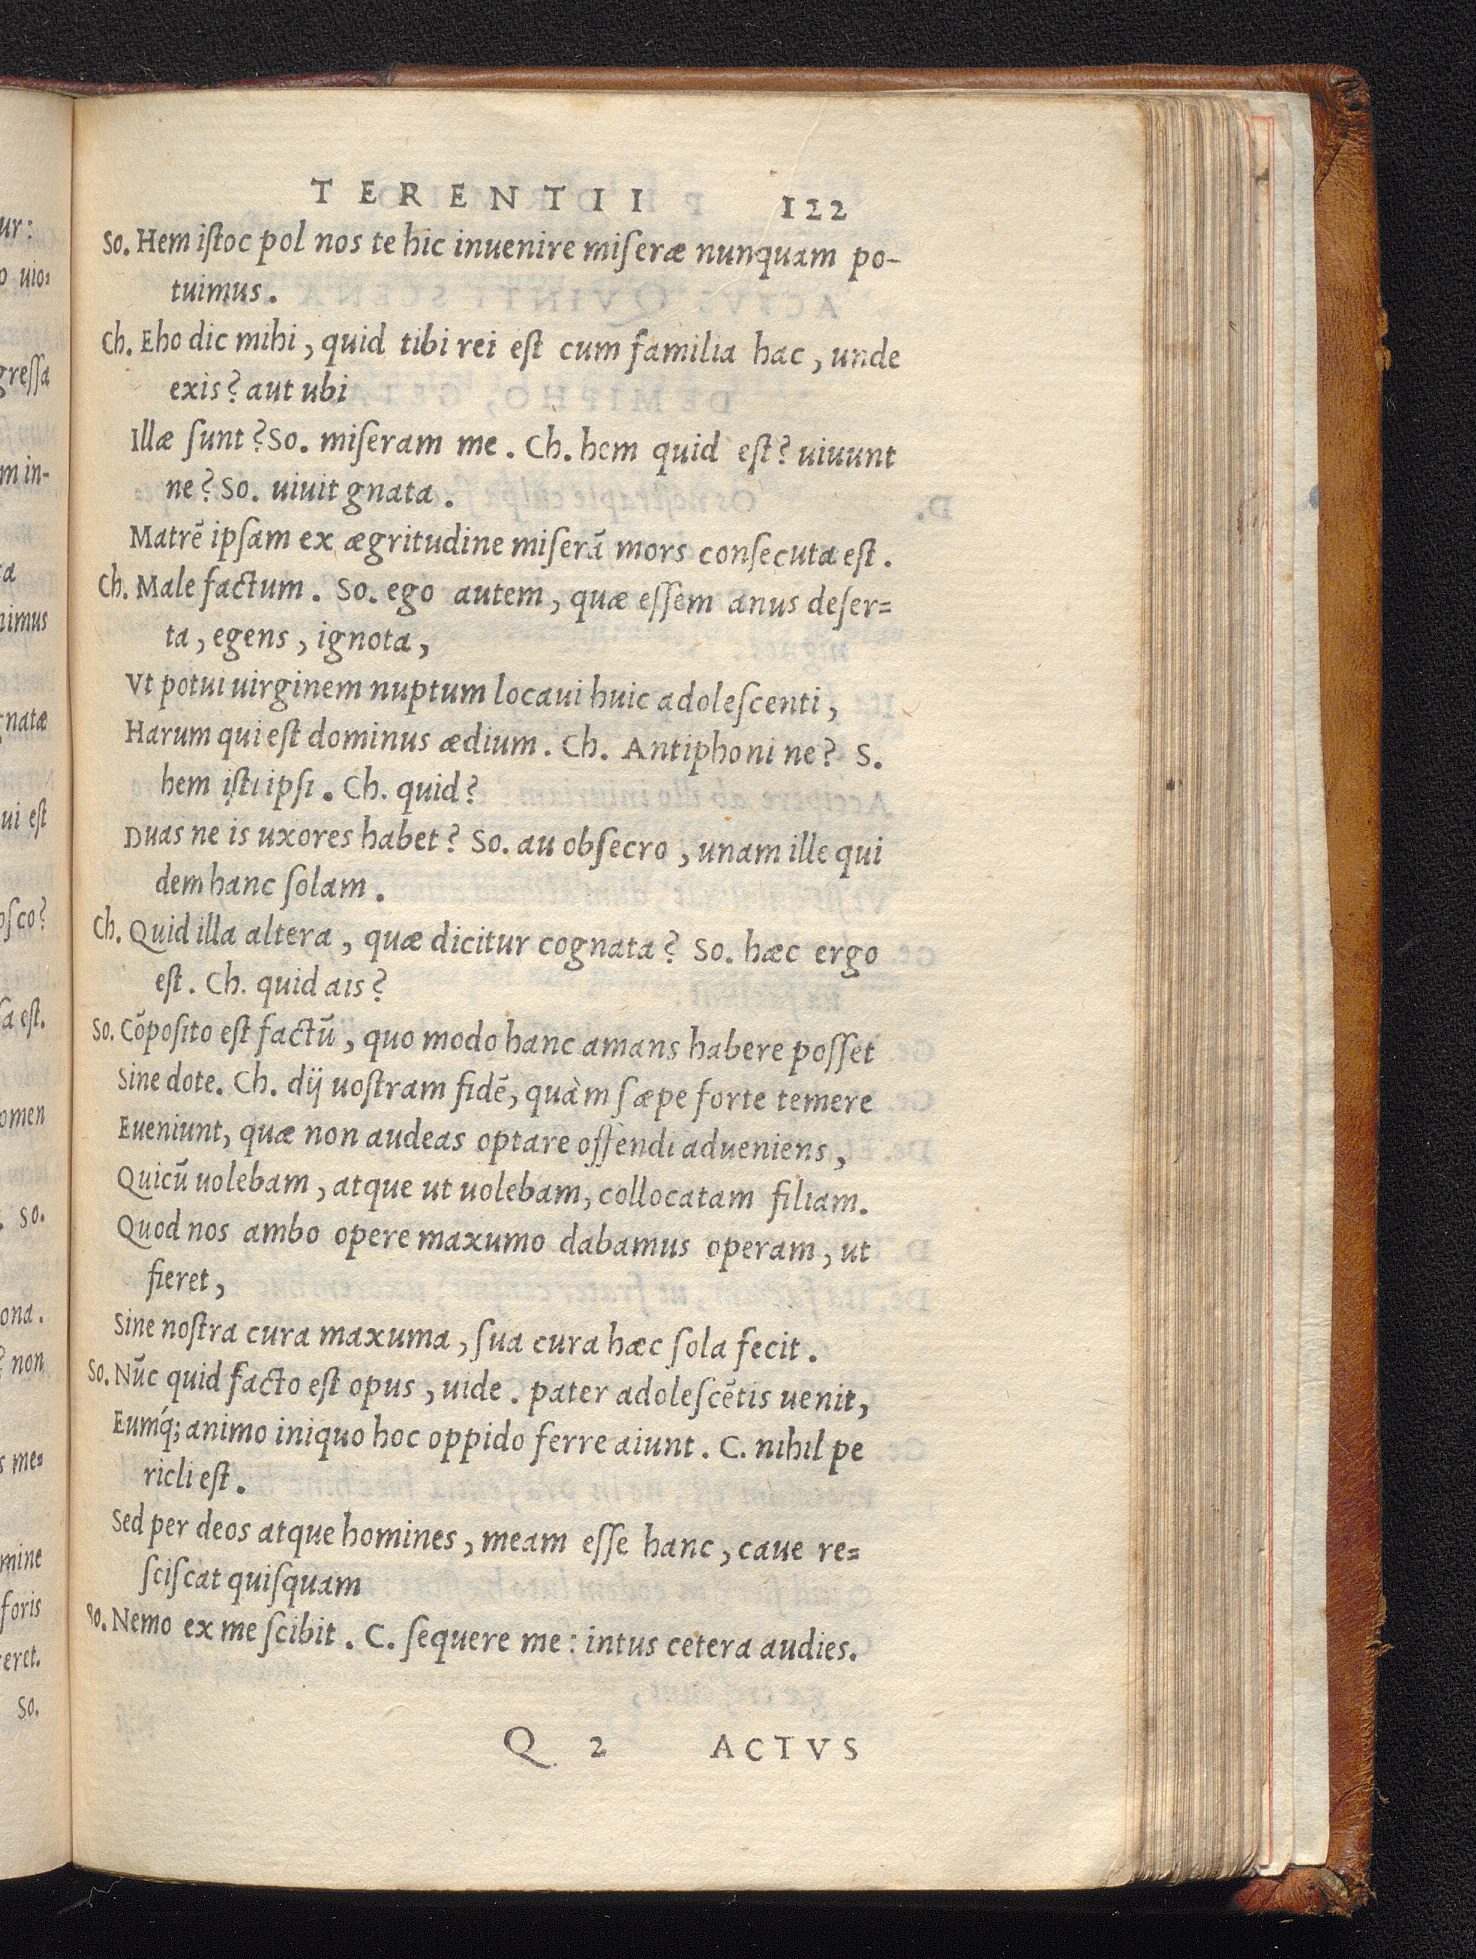 TERENTII 122
So. Hem iſtoc pol nos te hic inuenire miſeræ nunquam po-
tuimus.
Ch. Eho dic mihi, quid tibi rei eſt cum familia hac, unde
exis? aut ubi
Illæ ſunt? So. miſeram me. Ch. hem quid eſt? uiuunt
ne? So. uiuit gnata.
Matrē ipſam ex ægritudine miſerā mors conſecuta eſt.
Ch. Male factum. So. ego autem, quæ eſſem anus deſer=
ta, egens, ignota,
Vt potui uirginem nuptum locaui huic adoleſcenti,
Harum qui eſt dominus ædium. Ch. Antiphoni ne? S.
hem iſti ipſi. Ch. quid?
Duas ne is uxores habet? So. au obſecro, unam ille qui
dem hanc ſolam.
Ch. Quid illa altera, quæ dicitur cognata? So. hæc ergo
eſt. Ch. quid ais?
So. Cōpoſito eſt factū, quo modo hanc amans habere poſſet
Sine dote. Ch. dij uoſtram fidē, quàm ſæpe forte temere
Eueniunt, quæ non audeas optare offendi adueniens,
Quicū uolebam, atque ut uolebam, collocatam filiam.
Quod nos ambo opere maxumo dabamus operam, ut
fieret,
Sine noſtra cura maxuma, ſua cura hæc ſola fecit.
So. Nūc quid facto eſt opus, uide. pater adoleſcētis uenit,
Eumq́; animo iniquo hoc oppido ferre aiunt. C. nihil pe
ricli eſt.
Sed per deos atque homines, meam eſſe hanc, caue re=
ſciſcat quiſquam
So. Nemo ex me ſcibit. C. ſequere me: intus cetera audies.
Q 2 ACTVS